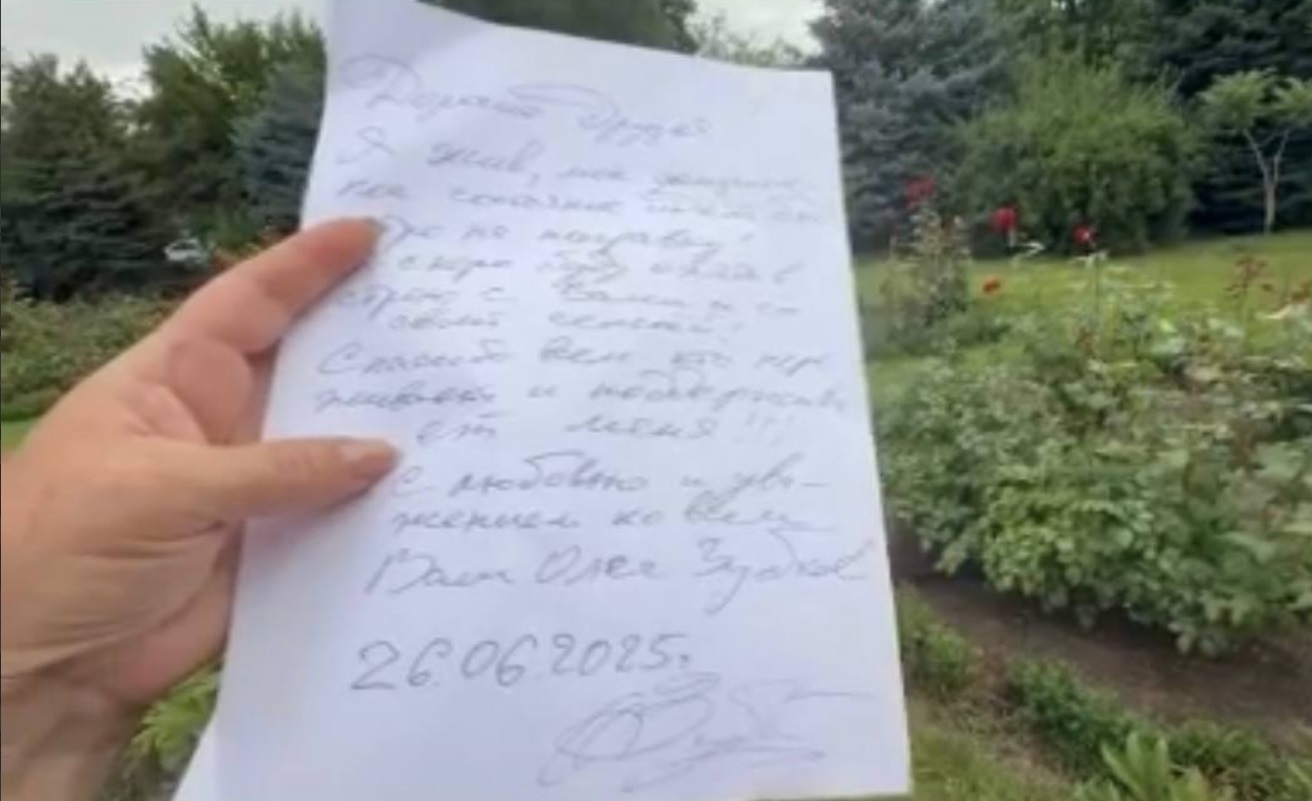 Дорогие Друзья
Я жив, моё
на
Иду на поправку!
Скоро буду опять в
строю с Вами и со
своей семьёй!
Спасибо всем кто пере
живает и поддержива
ет меня!!!
С любовью и ува-
жением ко всем
Ваш Олег Зубков
26.06.2025г.